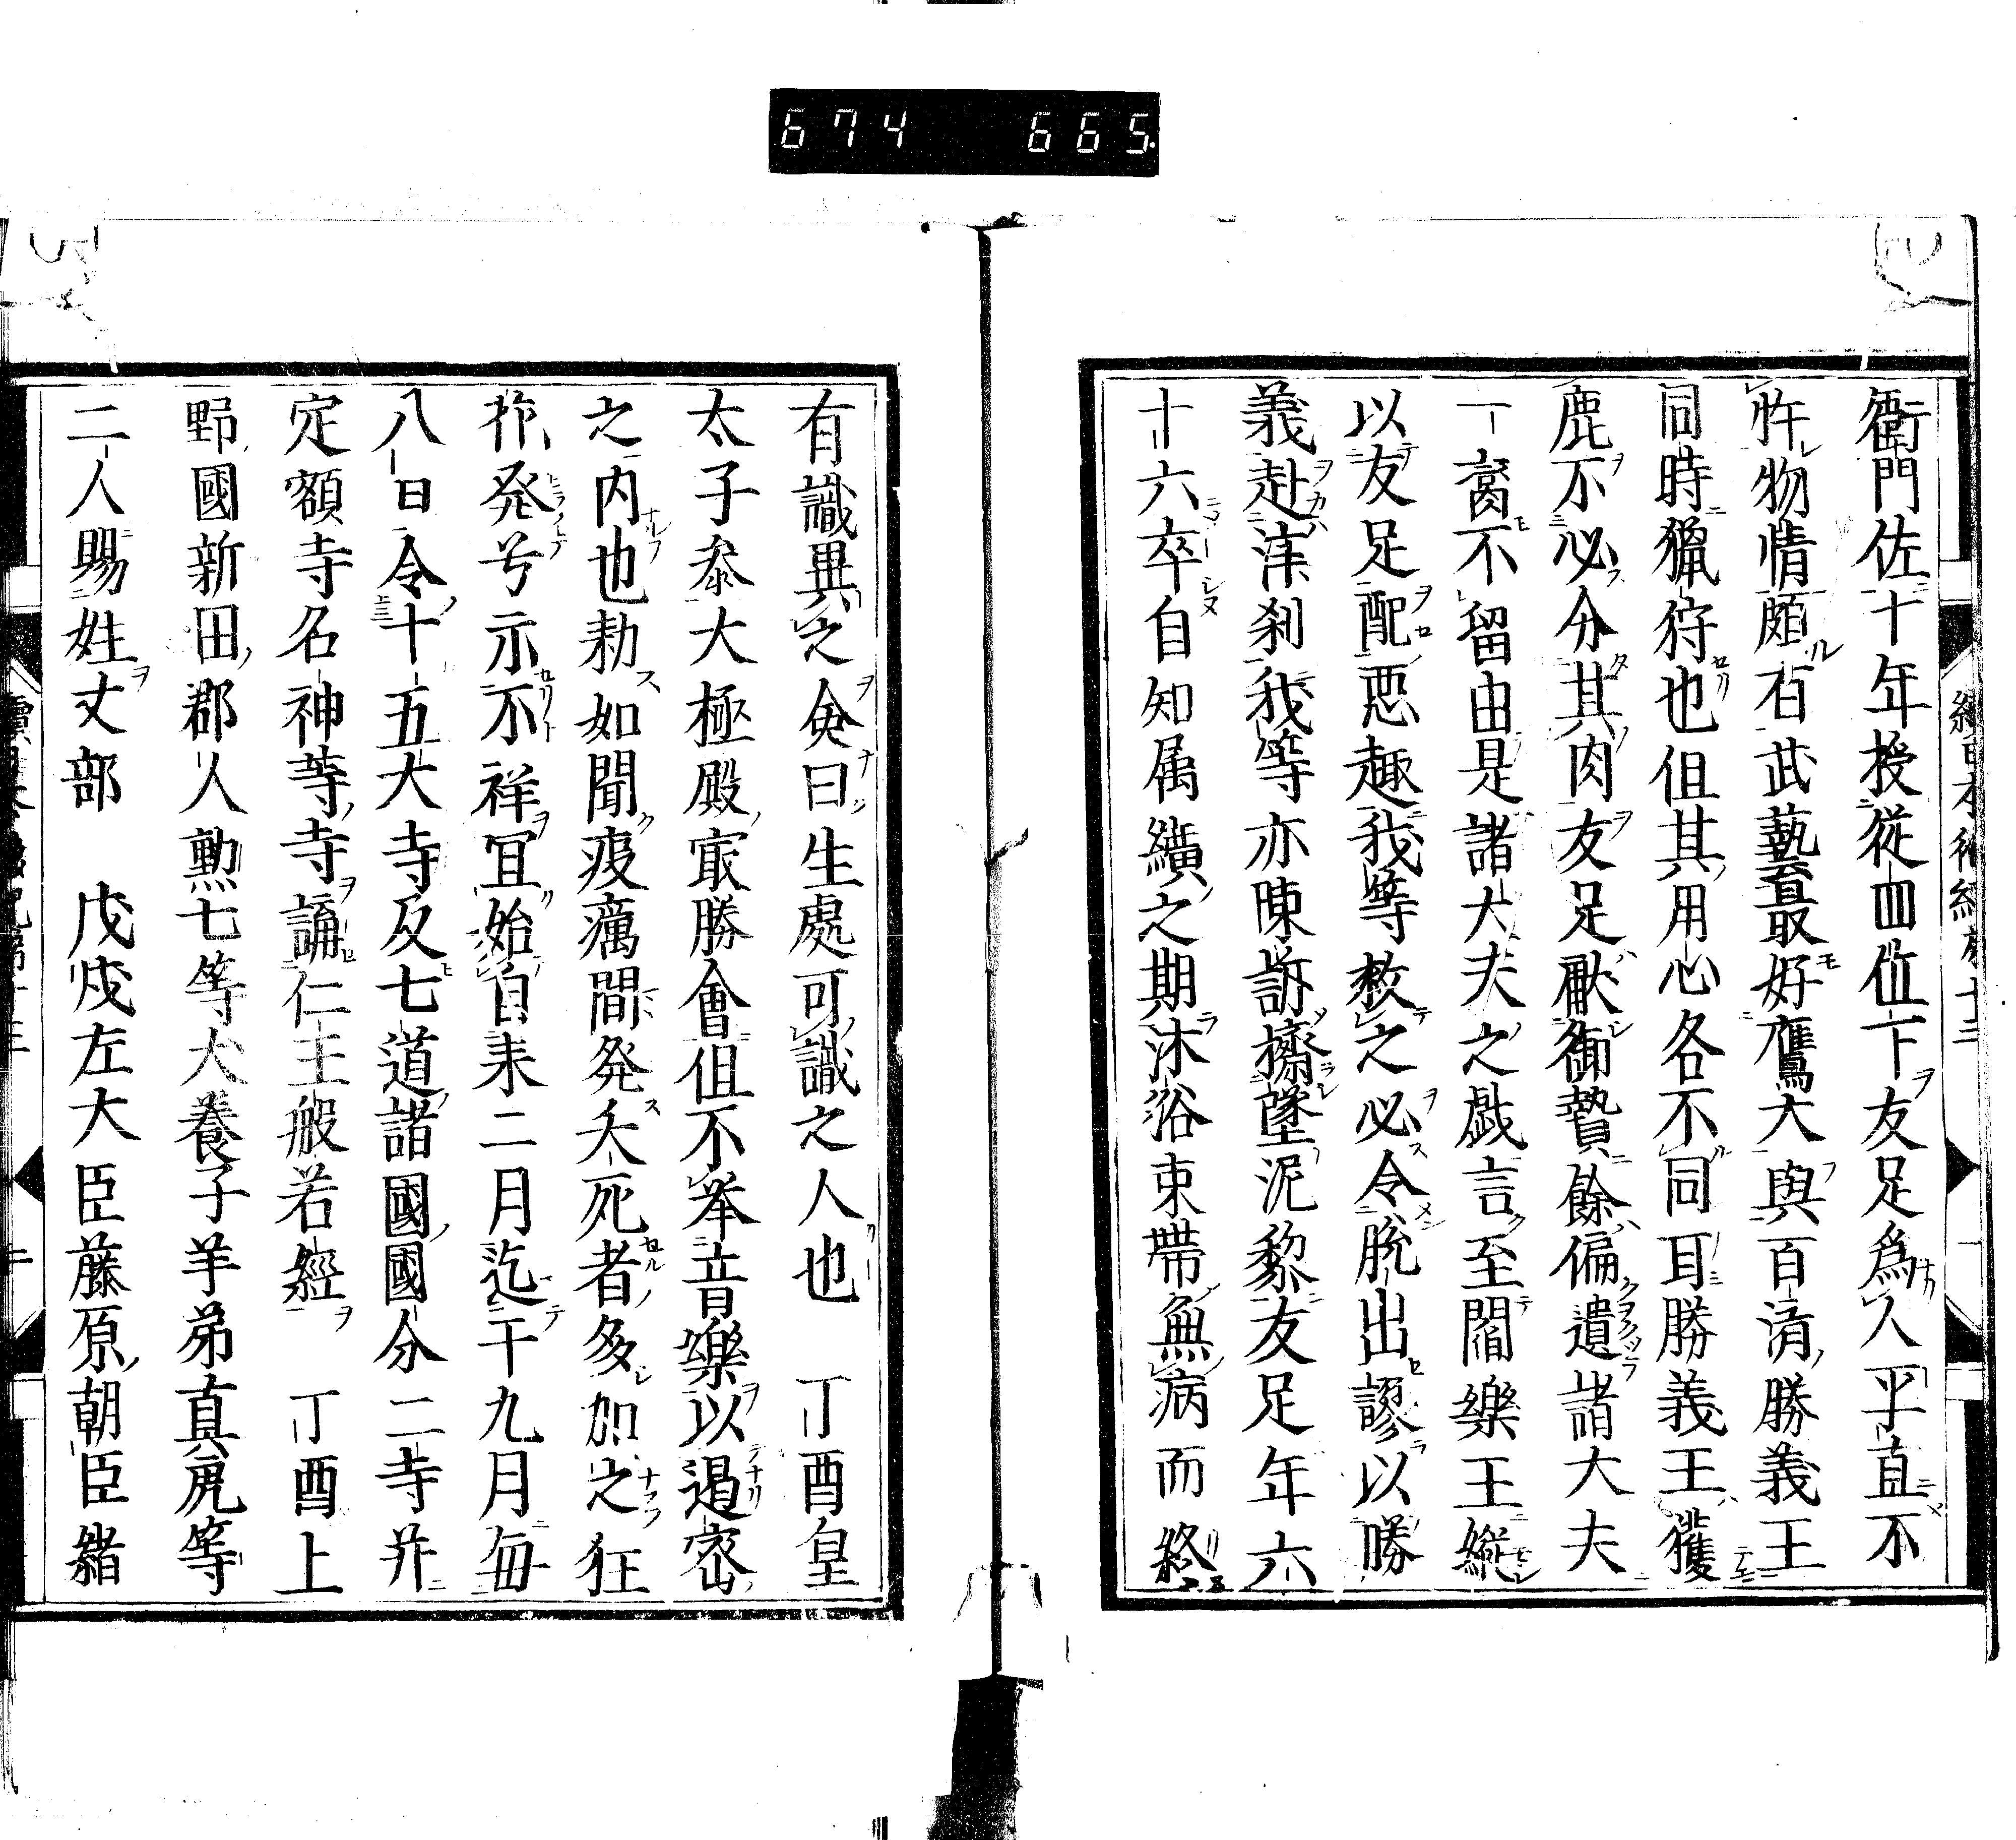 674 665
衞門佐十年授從四位下友足爲人平直不
忤物情頗有武藝最好鷹犬與百済勝義王
同時獵狩也但其用心各不同耳勝義王獲
鹿不必分其肉友足獻御贄餘偏遺諸大夫
一臠不留由是諸大夫之戯言至閻樂王
以友足配惡趣我等救之必令脫出謬以勝
義赴浄刹我等亦陳訴擠墜泥黎友足年六
十六卒自知属纊之期沐浴束帶無病而終
有識異之僉曰生處可識之人也 丁酉皇
太子叅大極殿㝡勝會但不举音樂以遏宻
之内也勅如聞疫癘間発夭死者多加之狂
祚発号示不祥冝始自来二月迄于九月毎
八日令十五大寺及七道諸國國分二寺并
定額寺名神等寺誦仁王般若經 丁酉上
野國新田郡人勲七等犬養子羊弟真虎等
二人賜姓丈部 戊戌左大臣藤原朝臣緒